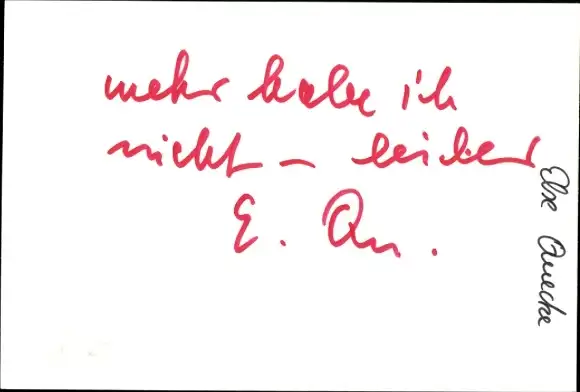 mehr habe ich
nicht – leider
E. Qu.
Else Quecke